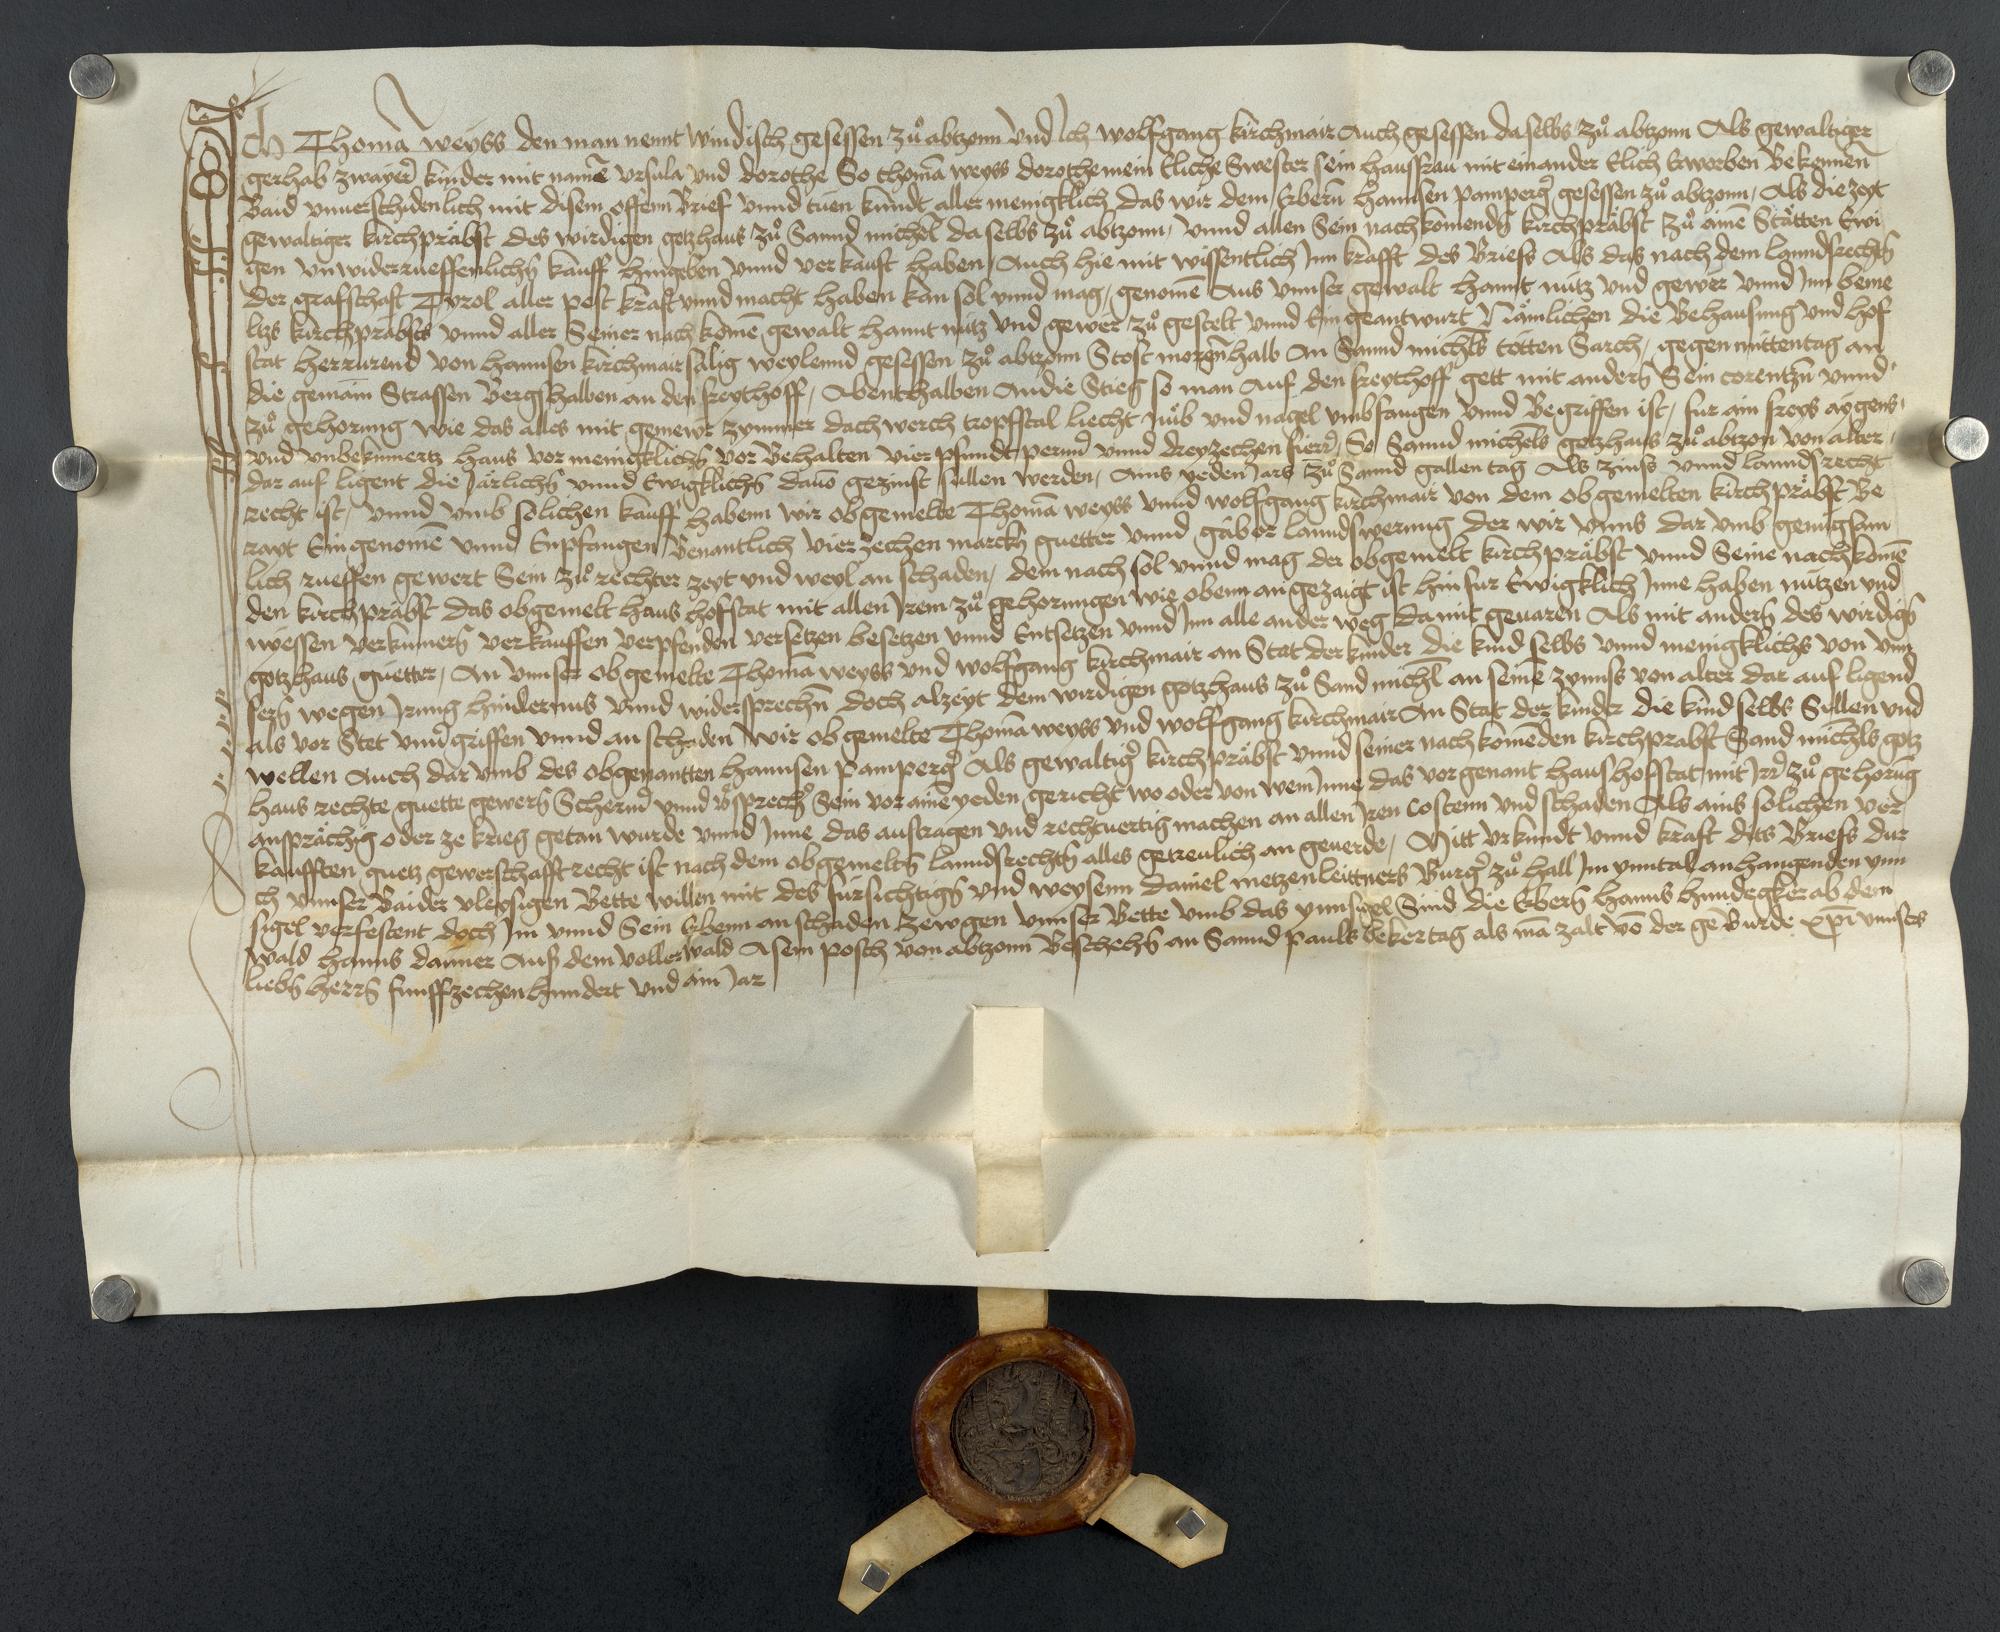 Ich Thoman weyss den man nennt windisch gesessen zů abtzonn vnd Ich wolfgang kirchmair Auch gesessen daselbs zů abtzonn Als gewaltiger
gerhab zwayer kinder mit namē vrsula vnd dorothe So thoman weyss dorothe mein Eliche Swester sein hausfrau mit einander Elich Erworben Bekennen
Baid vnuerschidenlich mit disem offenn Brief vnnd tuen kundt aller menigklich das wir dem Erbern hannsen pamperger gesessen zů abtzonn, Als die zeyt
gewaltiger kirchpräbst des wirdigen gotzhaus zů Sannd michel daselbs zů abtzonn, vnnd allen Sein nachkomenden kirchpräbst zů aime Stätten Ewi
gen vnwiderrueffenlichen kauff hingeben vnnd verkauft haben, Auch hie mit wissentlich Inn krafft des Briefs Als das nach dem lanndsrechten
der grafschaft Tyrol aller pest kraft vnnd macht haben kan sol vnnd mag, genomē Aus vnnser gewalt hannt nütz vnd gewer vnnd Inn beme
lts kirchpräbsts vnnd aller Seiner nachkomē gewalt hannt nütz vnd gewer zů gestelt vnnd Ein geantwurt Nämlichen die Behausung vnd hof
stat herrurend von hannsen kirchmair sälig weylennd gesessen zů abtzonn Stost morgenhalb An Sannd michels totten Sarch, gegen mittentag an
die gemain Strassen Bergshalben an den freythoff, Abenthalben An die Stieg so man Auf den freythoff gett mit andern Sein corentzn vnnd
zů gehorung wie das alles mit gemewr zymmer dachwerch tropfstal liecht nüb vnd nagel vmbfangen vnnd Begriffen ist, fur ain freys aygens
vnd vnbekumertz haus vor menigklichen vor Behalten vier pfundt perner vnnd dreyzechen fierer, So Sannd michels gotzhaus zů abtzon von alter
dar auf ligent die järlichen vnnd Ewigklichen dauō gezinst sullen werden, Ains yeden Jars zů Sannd gallen tag Als zinss vnnd lanndsrecht
recht ist, vnnd vmb solichen kauff habenn wir obgemelte Thoman weyss vnnd wolfgang kirchmair von dem obgemelten kirchpräbst Be
rayt Eingenomē vnnd Enpfangen Benantlich vierzechen marckh guetter vnnd gäber lanndswerung der wir vnns dar vmb genugsam
lich rueffen gewert Sein zů rechter zeyt vnd weyl an schaden, dem nach sol vnnd mag der obgemelt kirchpräbst vnnd Seine nachkomē
den kirchpräbst das obgemelt haus hofstat mit allen Irem zů gehorungen wie obenn angezaigt ist hin fur Ewigklich Inne haben nutzen vnd
wessen verkumern verkauffen verpfenden versetzen besetzen vnnd Entsetzen vnnd Inn alle ander weg damit geuaren Als mit andern des wirdigen
gotzhaus guetter, An vnnser obgemelte Thoman weyss vnd wolfgang kirchmair an Stat der kinder die kind selbs vnnd menigklichs von vnn
sern wegen Irung hindernus vnnd widersprechn doch alzeyt dem wirdigen gotzhaus zů Sand michel an seinē zynnss von alter dar auf ligend
als vor Stet vnuergriffen vnnd an schaden wir obgemelte Thoman weyss vnd wolfgang kirchmair An Stat der kinder die kind selbs Sullen vnd
wellen Auch dar vmb des obgenantten hannsen pamperger Als gewaltiger kirchpräbst vnnd seiner nachkomēden kirchprabst Sand michels gotz
haus rechte guette gewern Scherner vnnd versprecher Sein vor aine yeden gericht wo oder von wem Inne das vorgenant haus hofstat mit Irer zů gehorūg
ansprächig oder ze krieg getan wurde vnnd Inne das austragen vnd rechtuertig machen an allen Iren costenn vnd schaden Als ains solichen ver
kaufften guetz gewerschafft recht ist nach dem obgemelten lanndsrechten alles getreulich an geuerde, Mitt vrkundt vnnd kraft dits Briefs dur
ch vnnser Baider vleysigen Bette willen mit des fürsichtigen vnd weysenn daniel metzenleittners Burger zů hall Im ynntal anhangenden ynn
sigel verfestent doch Im vnnd Sein Erbenn an schaden zewgen vnnser Bette vmb das ynnsigel Sind die Erbern hanns hundegker ab dem
wald hanns danner Auß dem vollerwald Asem posch von abtzonn Beschechen an Sannd pauls bekertag als mā zalt vō der geburde xpi vnnsers
lieben herrn funffzechenhundert vnd ain Jar